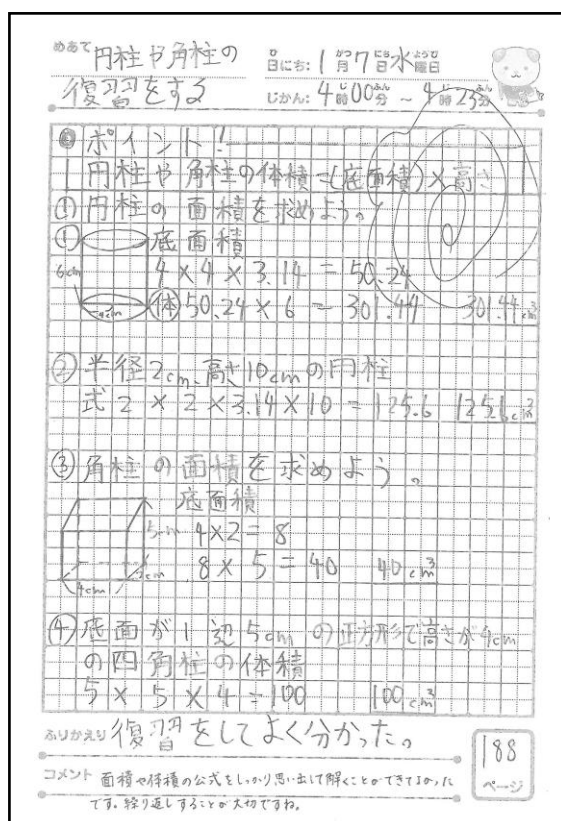 めあて 円柱や角柱の
復習をする
日にち: 1月7日水曜日
じかん: 4時00分 ~ 4時23分
ポイント!
円柱や角柱の体積=(底面積)×高さ
① 円柱の面積を求めよう。
① 底面積
6cm
4×4×3.14=50.24
4cm
体 50.24×6=301.44 301.44cm³
② 半径2cm、高さ10cmの円柱
式 2×2×3.14×10=125.6 125.6cm³
③ 角柱の面積を求めよう。
底面積
5cm 4×2=8
2cm
8×5=40 40cm³
4cm
④ 底面が1辺5cmの正方形で高さが4cm
の四角柱の体積
5×5×4=100 100cm³
ふりかえり 復習をしてよく分かった。
188
ページ
コメント 面積や体積の公式をしっかり思い出して解くことができてよかった
です。繰り返しすることが大切ですね。